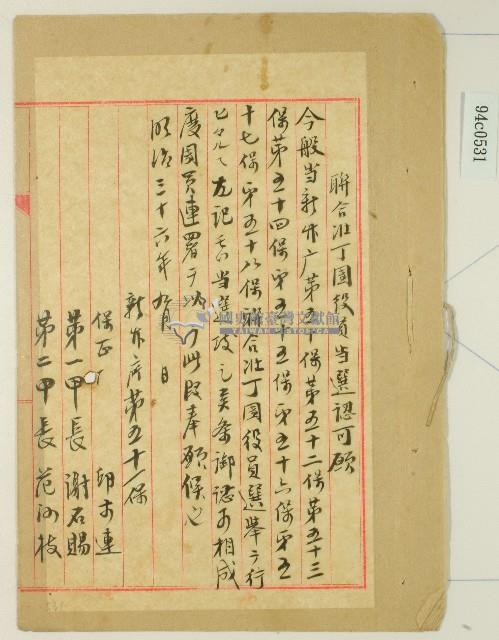 聯合壮丁團役員当選認可願
今般当新竹庁第五十保第五十二保第五十三
保第五十四保第五十五保第五十六保第五
十七保第五十八保聯合壮丁團役員選舉ヲ行
ヒタルニ左記ノ当選致シ候条御認可相成
度團員連署ヲ以テ此段奉願候也
明治三十六年九月 日
新竹庁第五十一保
保正 邱 連
第一甲長 謝石賜
第二甲長 范 枝
國史館臺灣文獻館
TAIWAN HISTORICA
94c0531